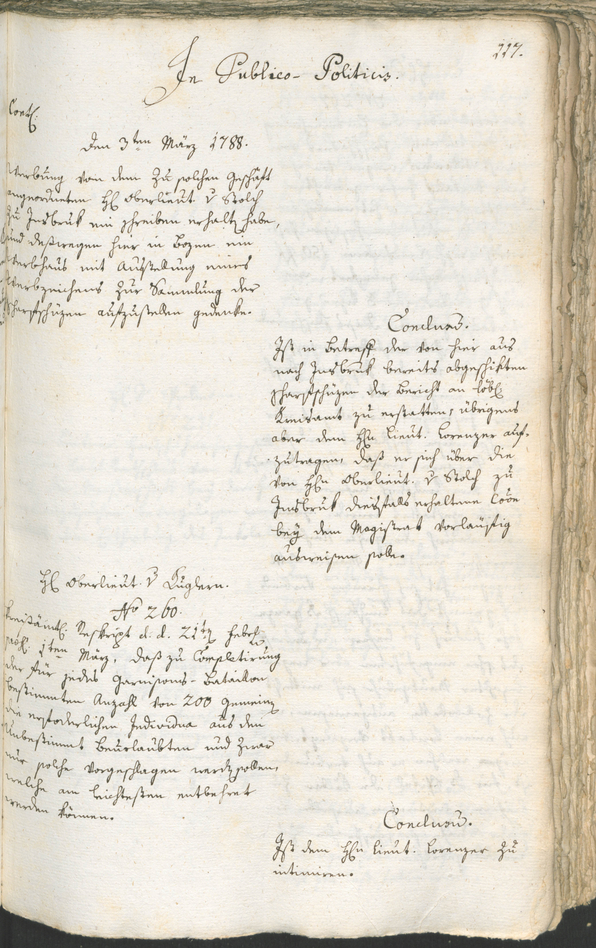 117.
In Publico-Politicis.
Cont.
den 3ten März 1788.
Werbung von dem zu solchen Geschäft
angeordneten H Oberlieut. v Stolch
zu Insbruk ein schreiben erhalten habe,
und deßwegen hier in Bozen ein
Werbhaus mit Ausstellung eines
Werbzeichens zur Sammlung der
Scharfschüzen aufzustellen gedenke.
Conclusū.
Ist in Betreff der von hier aus
nach Insbruk bereits abgeschikten
Scharfschüzen der Bericht an löbl
Kreisamt zu erstatten, übrigens
aber dem Hn Lieut. Lorenzer auf-
zutragen, daß er sich über die
von Hn Oberlieut. v Stolch zu
Insbruk diesfalls erhaltene
bey dem Magistrat vorläufig
ausweisen solle.
H Oberlieut. v Kuglern.
No 260.
Kreisämtl. Reskript d. d. 21ten Febr
1ten März, daß zu Completirung
der für jedes Garnisons-Bataillon
bestimmten Anzahl von 200 gemeinen
die erforderlichen Individua aus den
Unbestimmt Beurlaubten und zwar
nur solche vorgeschlagen werden sollen,
welche am leichtesten entbehret
werden können.
Conclusū.
Ist dem Hn Lieut. Lorenzer zu
intimiren.